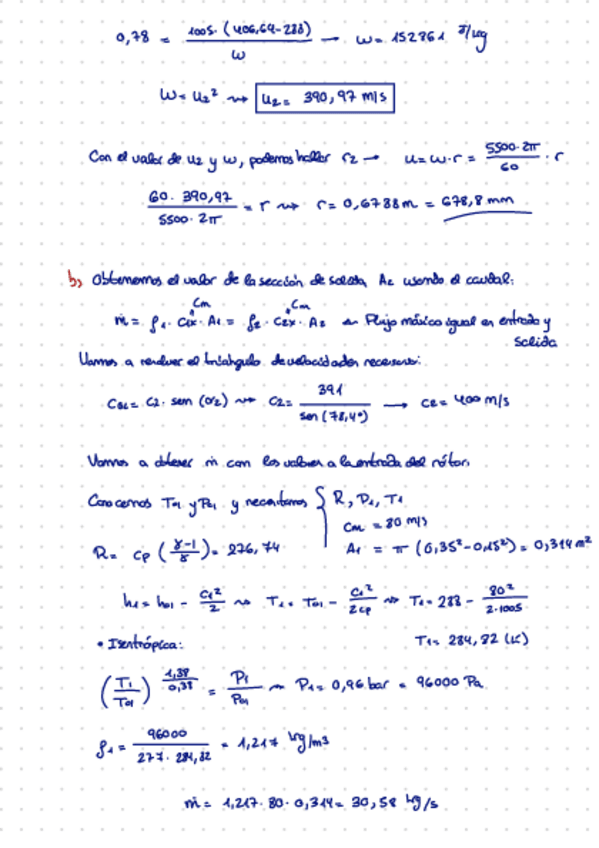 0,78 = 1005 · (406,64-288) / w → w = 152861 J/kg
w = u2² ⇝ u2 = 390,97 m/s
Con el valor de u2 y w, podemos hallar r2 → u = w·r = 5500·2π / 60 · r
60 · 390,97 / 5500 · 2π = r ⇝ r = 0,6788m = 678,8 mm
b) Obtenemos el valor de la sección de salida A2 usando el caudal:
Cm Cm
ṁ = ρ1 · C1x · A1 = ρ2 · C2x · A2 Flujo másico igual en entrada y
salida
Vamos a resolver el triángulo de velocidades necesario:
Cθ2 = C2 · sen (α2) ⇝ C2 = 391 / sen (78,4º) → C2 = 400 m/s
Vamos a obtener ṁ con los valores a la entrada del rótor.
Conocemos T01 y P01 y necesitamos { R, P1, T1
Cm = 80 m/s
R = cp (γ-1 / γ) = 276,74 A1 = π (0,35² - 0,15²) = 0,314 m²
h1 = h01 - C1² / 2 ⇝ T1 = T01 - C1² / 2cp ⇝ T1 = 288 - 80² / 2·1005
• Isentrópica: T1 = 284,82 (K)
(T1 / T01)^(1,38 / 0,38) = P1 / P01 ⇝ P1 = 0,96 bar = 96000 Pa
ρ1 = 96000 / 277 · 284,82 = 1,217 kg/m3
ṁ = 1,217 · 80 · 0,314 = 30,58 kg/s